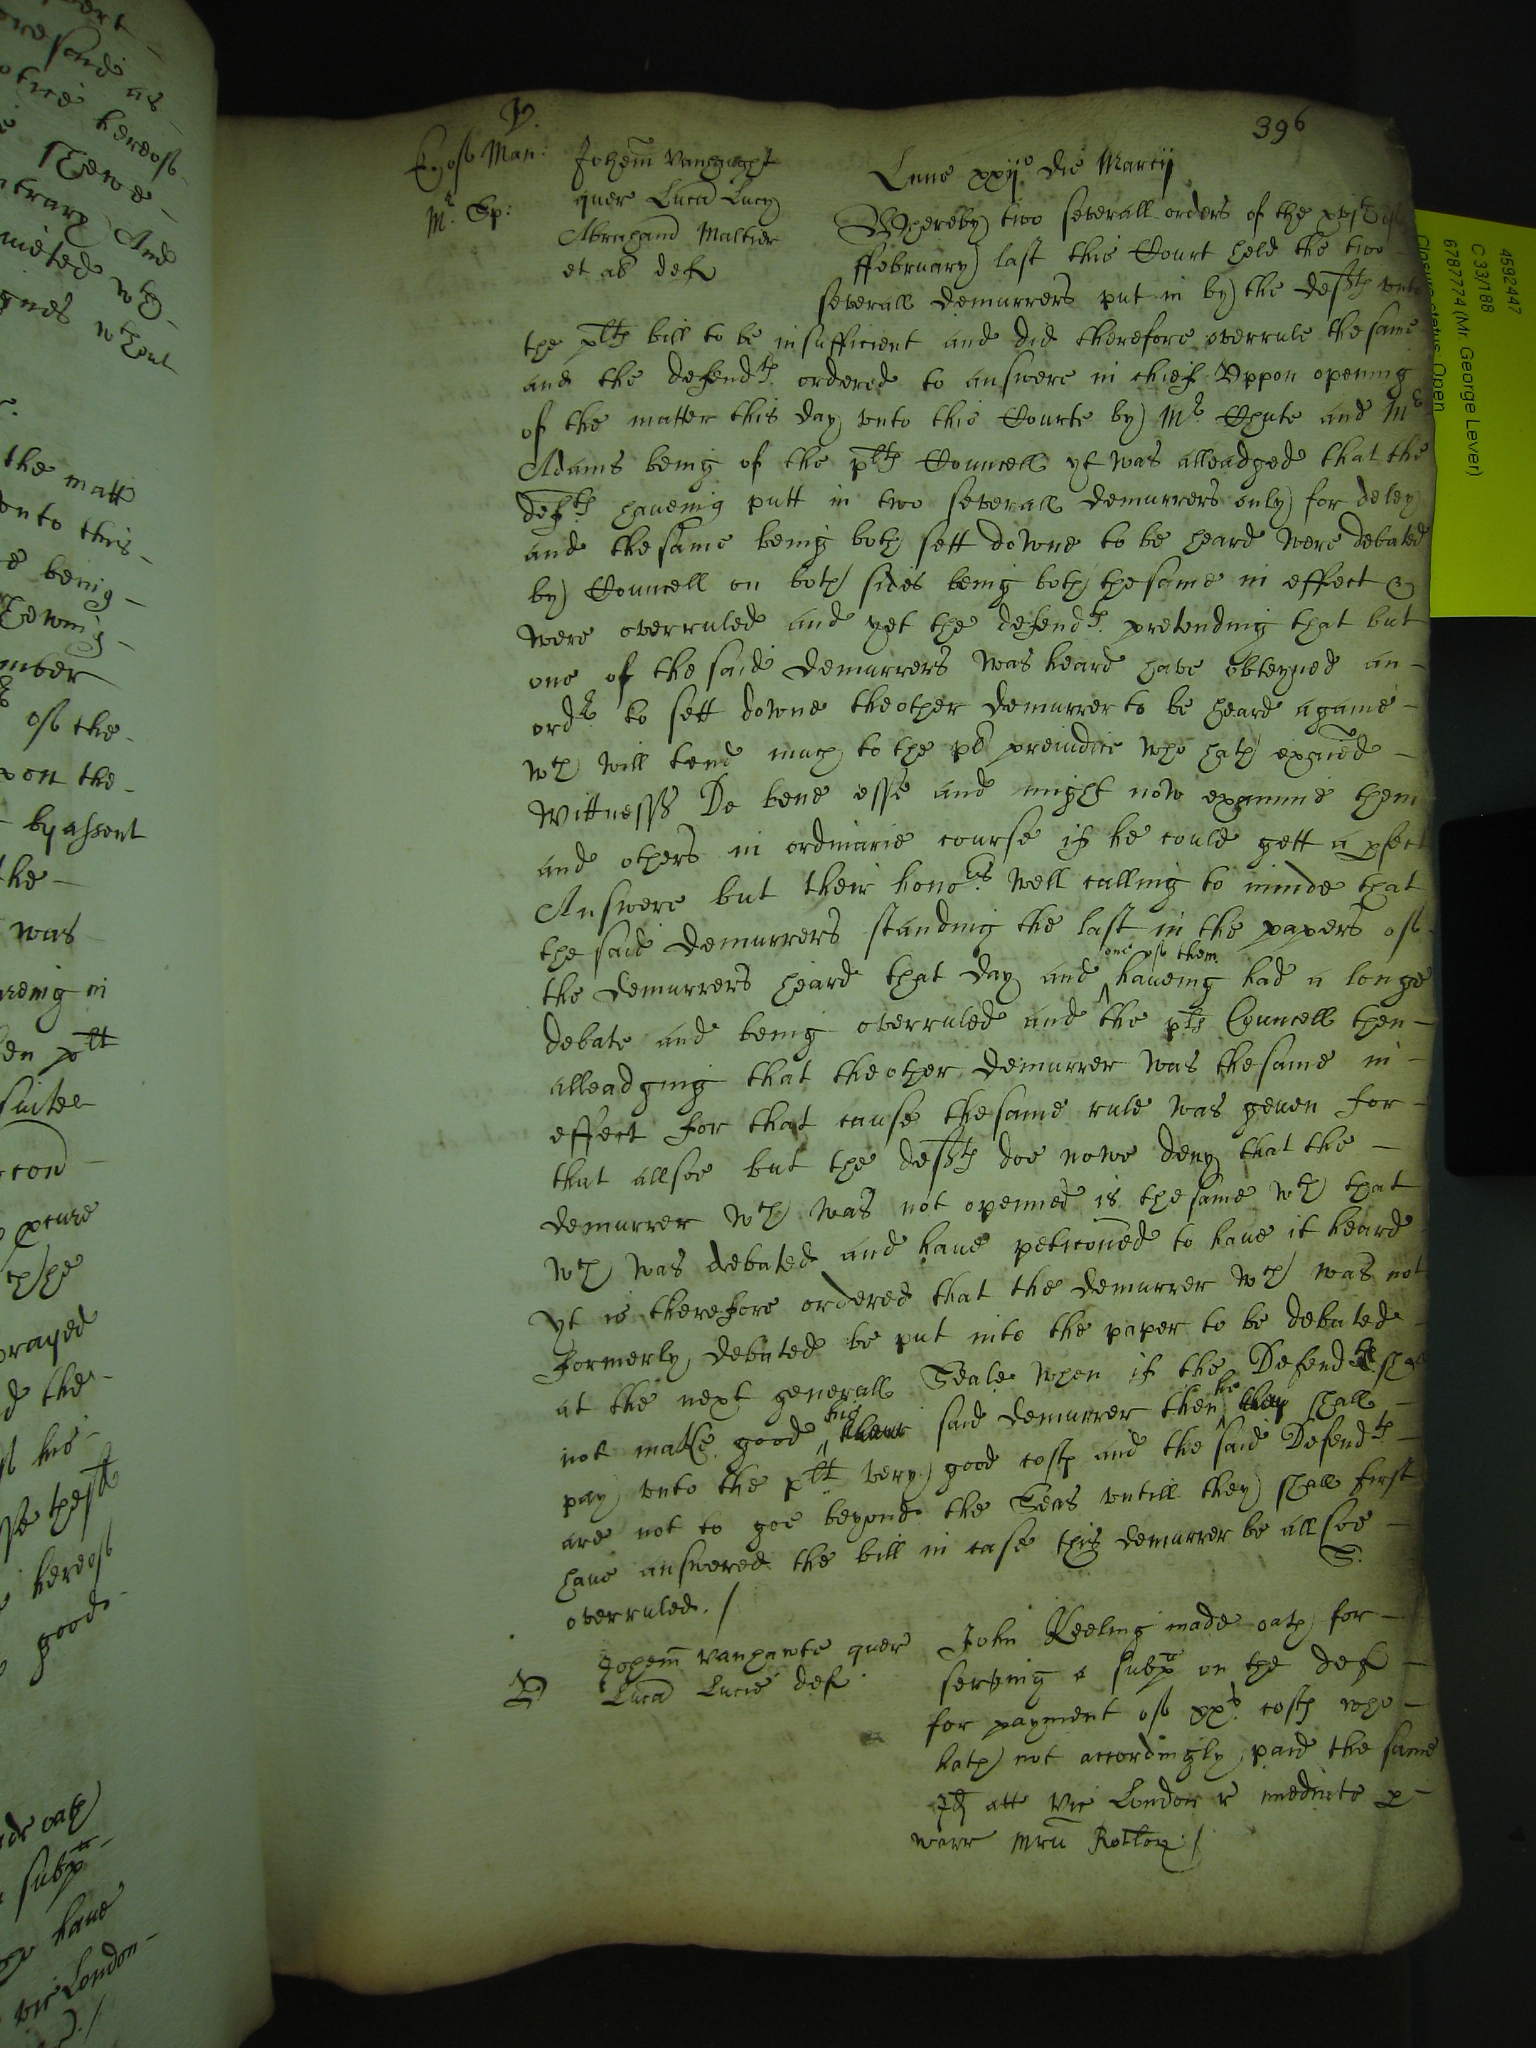 V.
396
E. of Man:
Mr. Sp:
Johem Vanhught
quer Lucā Lucy
Abrahamū Maltier
et al def
Lune xxijo die Martij
Whereby two severall orders of the
ffebruary last this Court held the two
severall demurrers put in by the defts vnto
the plts bill to be insufficient and did therefore overrule thesame
and the defendts. ordered to answere in chief Vppon opening
of the matter this day vnto this Courte by Mr. Chute and Mr
Adams being of the plts Councell yt was alleadged that the
defts haueing putt in two severall demurrers only for deley
and thesame being both sett downe to be heard were debated
by Councell on both sides being both thesame in effect &
were overruled and yet the defendts. pretending that but
one of thesaid demurrers was heard have obteyned an -
ordr to sett downe theother demurrer to be heard againe -
wch will tend much to the pl preiudice who hath exaied -
wittnesss De bene esse and might now examine them
and others in ordinarie course if he could gett a pfect
Answere but their honors well calling to minde that
the said demurrers standing the last in the papers of
the demurrers heard that day and ^ one of them haueing had a longe
debate and being overruled and the plts Councell then -
alleadging that theother demurrer was thesame in -
effect for that cause thesame rule was geven for -
that allsoe but the defts doe nowe deny that the -
demurrer wch was not openned is thesame wth that
wch was debated and haue peticoned to haue it heard
yt is therefore ordered that the demurrer wch was not
formerly debated be put into the paper to be debated -
at the next generall Seale when if the Defendt shall
not make good his their said demurrer then he they shall -
pay vnto the plt very good costs and the said Defendts -
are not to goe beyond the Seas vntill they shall first
haue answered the bill in case this demurrer be allsoe -
overruled. /
S.
V
Johem vanhante quer
Lucā Lucie def
John Keeling made oath for -
serving a subp on the def -
for payment of xxs. costs who -
hath not accordingly paid the same
Id att vic London r imediate p -
warr mru Rotlor /
the matt
onto this -
e being -
mber
of the -
pon the -
- by assent
the -
was
areing in
en plt
suitee
con -
the
prayed
d the -
his -
hereof
good -
ade oath
subp
haue
vic London -
4592447
C 33/188
6787774 (Mr. George Lever)
Closure status: Open